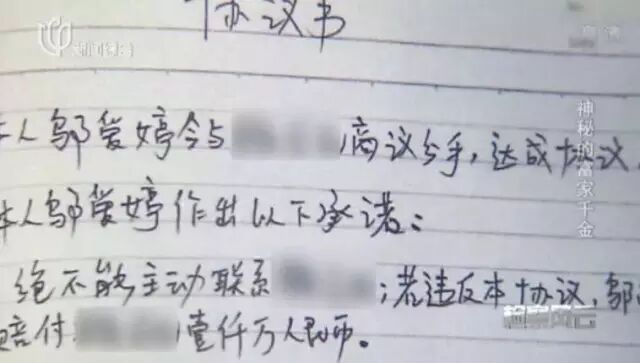 协议书
本人邬爱婷今与 商议分手,达成协议
本人邬爱婷作出以下承诺:
绝不能主动联系 ;若违反本协议,邬
赔付 壹仟万人民币。
神秘的富家千金